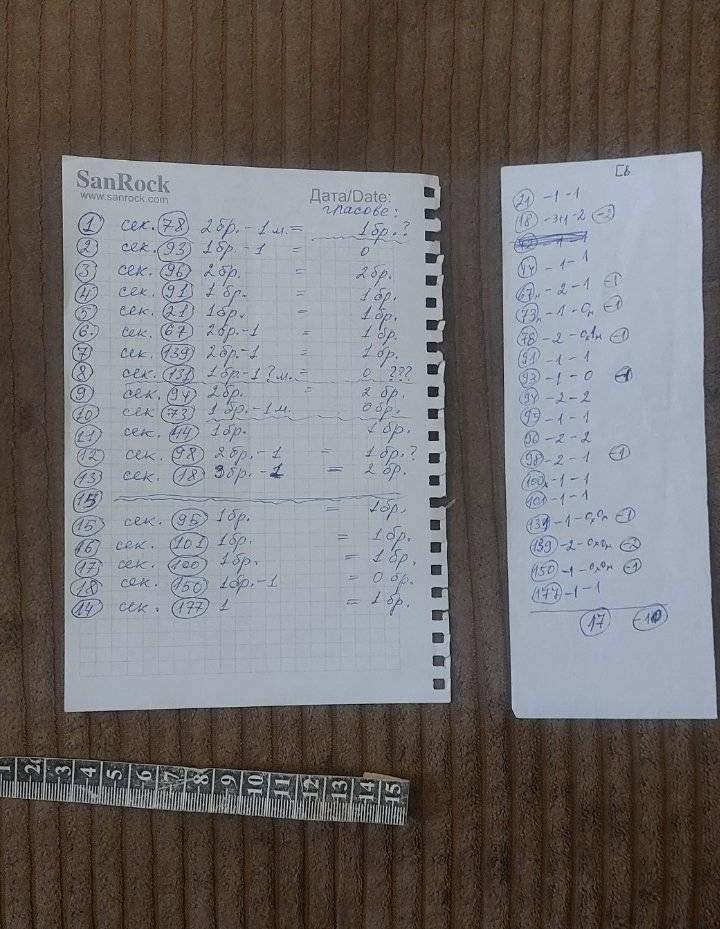 SanRock
www.sanrock.com
Дата/Date:
гласове:
1 сек. 78 2бр. - 1м. = 1бр.?
2 сек. 93 1бр. - 1 = 0
3 сек. 96 2бр. = 2бр.
4 сек. 91 1бр. = 1бр.
5 сек. 21 1бр. = 1бр.
6. сек. 67 2бр. - 1 = 1бр.
7 сек. 139 2бр. - 1 = 1бр.
8 сек. 131 1бр. - 1?м. = 0 ???
9 сек. 94 2бр. = 2бр.
10 сек. 73 1бр. - 1м. 0бр.
11 сек. 44 1бр. 1бр.
12 сек. 98 2бр. - 1 = 1бр.?
13 сек. 18 3бр. - 1 = 2бр.
15
15 сек. 95 1бр. = 1бр.
16 сек. 101 1бр. = 1бр.
17 сек. 100 1бр. = 1бр.
18 сек. 150 1бр. - 1 = 0бр.
14 сек. 177 1 = 1бр.
21 - 1 - 1
18 - -2
44 - 1 - 1
67 - 2 - 1 -1
73 - 1 - -1
78 - 2 - -1
91 - 1 - 1
93 - 1 - 0 -1
94 - 2 - 2
95 - 1 - 1
96 - 2 - 2
98 - 2 - 1 -1
100 - 1 - 1
101 - 1 - 1
131 - 1 - -1
139 - 2 - -2
150 - 1 - -1
177 - 1 - 1
17 -10